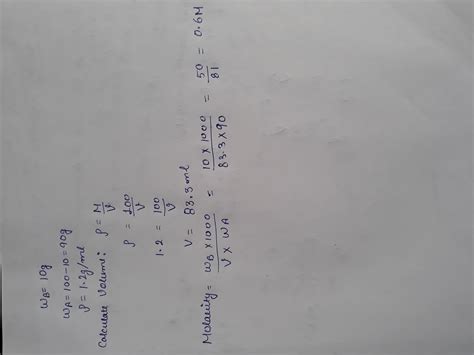 WB = 10g
WA = 100-10 = 90g
ρ = 1.2g/ml
Calculate Volume: ρ = M/V
ρ = 100/V
1.2 = 100/V
V = 83.3ml
Molarity = WB x 1000 / V x WA = 10 x 1000 / 83.3 x 90 = 50/81 = 0.6M